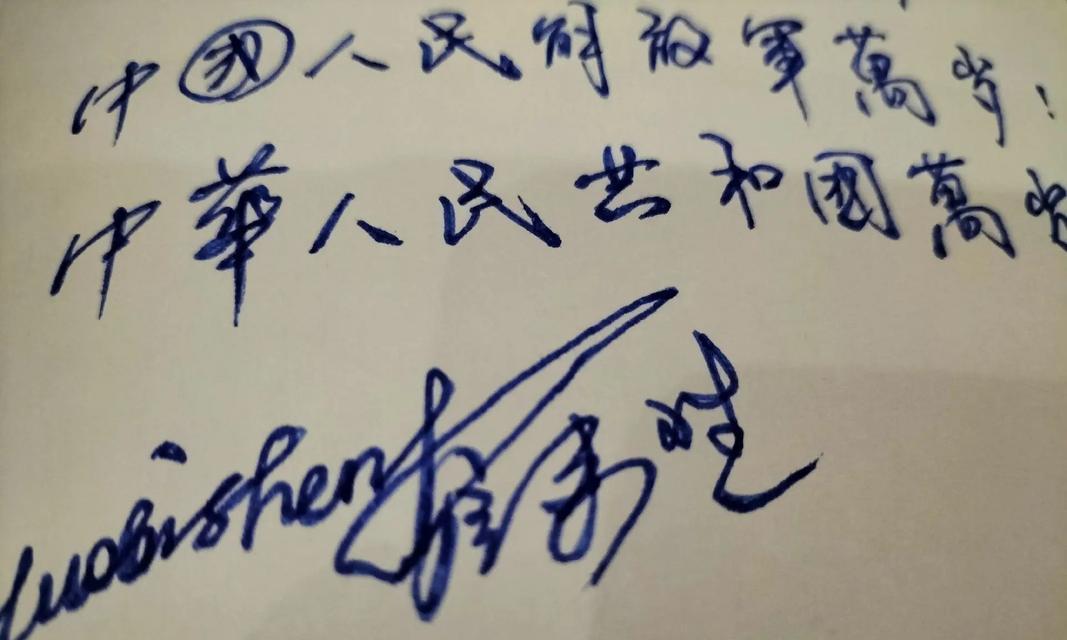 中國人民解放軍萬岁！
中華人民共和國萬岁
luobisheng